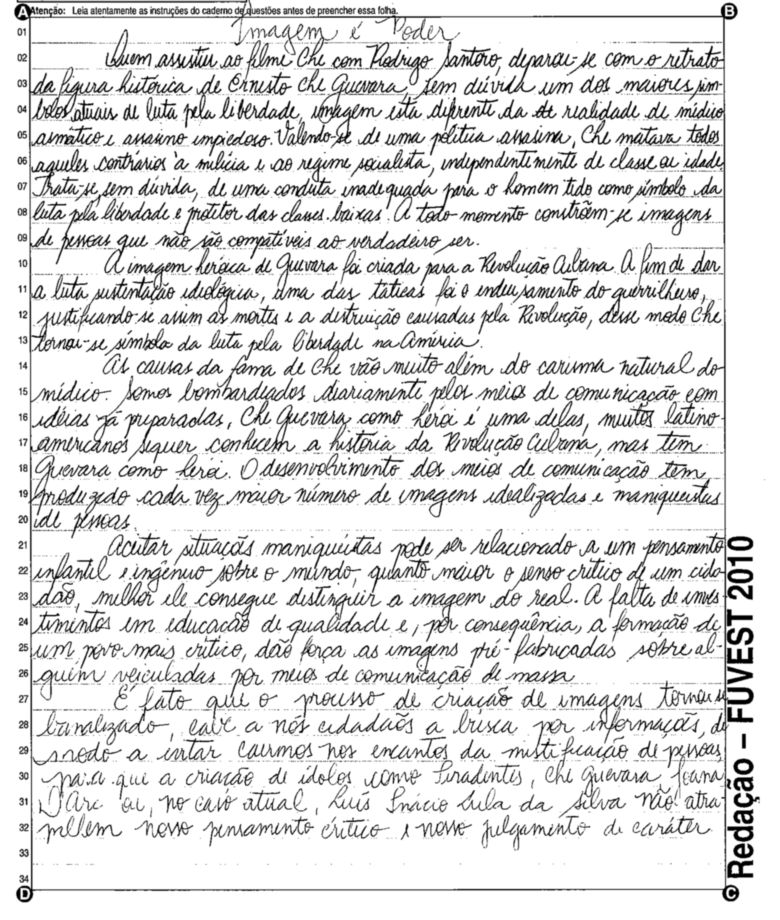 A Atenção: Leia atentamente as instruções do caderno de questões antes de preencher essa folha. B
01 Imagem é Poder
02 Quem assistiu ao filme Che com Rodrigo Santoro, deparou-se com o retrato
03 da figura histórica de Ernesto Che Guevara, sem dúvida um dos maiores sím-
04 bolos atuais de luta pela liberdade, imagem esta diferente da realidade de médico
05 asmático e assassino impiedoso. Valendo-se de uma política assassina, Che matava todos
06 aqueles contrários à milícia e ao regime socialista, independentemente de classe ou idade.
07 Trata-se, sem dúvida, de uma conduta inadequada para o homem tido como símbolo da
08 luta pela liberdade e protetor das classes baixas. A todo momento constrõem-se imagens
09 de pessoas que não são compatíveis ao verdadeiro ser.
10 A imagem heróica de Guevara foi criada para a Revolução Cubana. A fim de dar
11 a luta sustentação ideológica, uma das táticas foi o endeusamento do guerrilheiro,
12 justificando-se assim as mortes e a destruição causadas pela Revolução, desse modo Che
13 tornou-se símbolo da luta pela liberdade na América.
14 As causas da fama de Che vão muito além do carisma natural do
15 médico. Somos bombardeados diariamente pelos meios de comunicação com
16 idéias já preparadas, Che Guevara como herói é uma delas, muitos latino-
17 americanos sequer conhecem a história da Revolução Cubana, mas tem
18 Guevara como herói. O desenvolvimento dos meios de comunicação tem
19 produzado cada vez maior número de imagens idealizadas e maniqueístas
20 de pessoas.
21 Aceitar situações maniqueístas pode ser relacionado a um pensamento
22 infantil e ingênuo sobre o mundo, quanto maior o senso crítico de um cida-
23 dão, melhor ele consegue distinguir a imagem do real. A falta de inves
24 timentos em educação de qualidade e, por consequência, a formação de
25 um povo mais crítico, dão força as imagens pré-fabricadas sobre al-
26 guém veiculadas por meios de comunicação de massa
27 É fato que o processo de criação de imagens tornou-se
28 banalizado, cabe a nós cidadãos a busca por informações, de
29 modo a evitar cairmos nos encantos da mistificação de pessoas,
30 para que a criação de ídolos como Tiradentes, Che Guevara Joana
31 D'Arc ou, no caso atual, Luis Inácio Lula da Silva não atra
32 palhem nosso pensamento crítico e nosso julgamento de caráter.
33
34
D C
Redação – FUVEST 2010